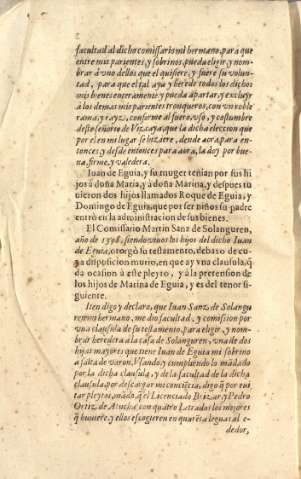 facultad al dicho comissario mi hermano, para que
entre mis parientes, y sobrinos, pueda elegir, y nom-
brar à vno dellos que el quisiere, y fuere su volun-
tad, para que el tal aya y herede todos los dichos
mis bienes enteramente y pueda apartar y excluyr
à los demas mis parientes tronqueros, con vn roble
rama, y rayz, conforme al fuero, vso, y costumbre
deste señorio de Vizcaya que la dicha eleccion que
por el en mi lugar se hiziere, dende aora, para en-
tonces y desde entonces para aora, la doy por bue-
na, firme, y valedera.
Iuan de Eguia, y su muger tenian por sus hi-
jos à doña Maria, y à doña Marina, y despues tu
uieron dos hijos llamados Roque de Eguia, y
Domingo de Eguia, que por ser niños su padre
entrò en la administracion de sus bienes.
El Comissario Martin Sanz de Solanguren,
año de 1598. siendo viuos los hijos del dicho Iuan
de Eguia, otorgò su testamento, debaxo de cu-
ya disposicion murio, en que ay vna clausula, q̃
da ocasion à este pleyto, y à la pretension de
los hijos de Marina de Eguia, y es del tenor si-
guiente.
Iten digo y declaro, que Iuan Sanz, de Solangu
ren mi hermano, me dio facultad, y comission por
vna clausula de su testamento, para elegir, y nom-
brar heredera a la casa de Solanguren, vna de dos
hijas mayores que tiene Iuan de Eguia mi sobrino
a falta de varon. Vsando, y cumpliendo lo mãdado
por la dicha clausula, y de la facultad de la dicha
clausula, por descargar mi conciẽcia, digo q̃ por eui
tar pleytos, mãdo, q̃ el Licenciado Brizar, y Pedro
Ortiz, de Atucha con quatro Letrados los mejores
q̃ huuiere, y ellos escogieren en quarẽta leguas al re
dedor,